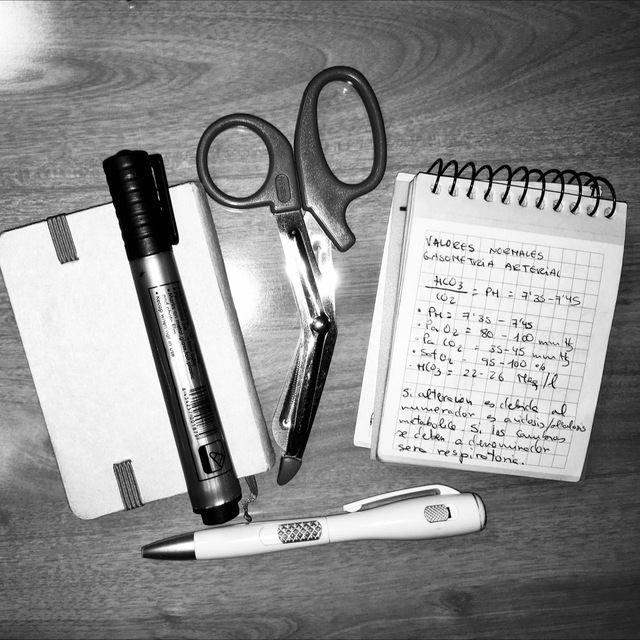 VALORES NORMALES
GASOMETRÍA ARTERIAL
HCO3
CO2
= PH = 7'35-7'45
• PH = 7'35 - 7'45
• PaO2 = 80 - 100 mmHg
• PaCO2 = 35-45 mmHg
• SatO2 = 95-100 %
• HCO3 = 22-26 Meq/l
Si alteración es debida al
numerador es acidosis/alcalosis
metabólica. Si los cambios
se deben a denominador
sera respiratoria.